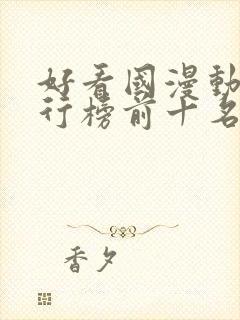 好看國漫動
行榜前十名
香夕